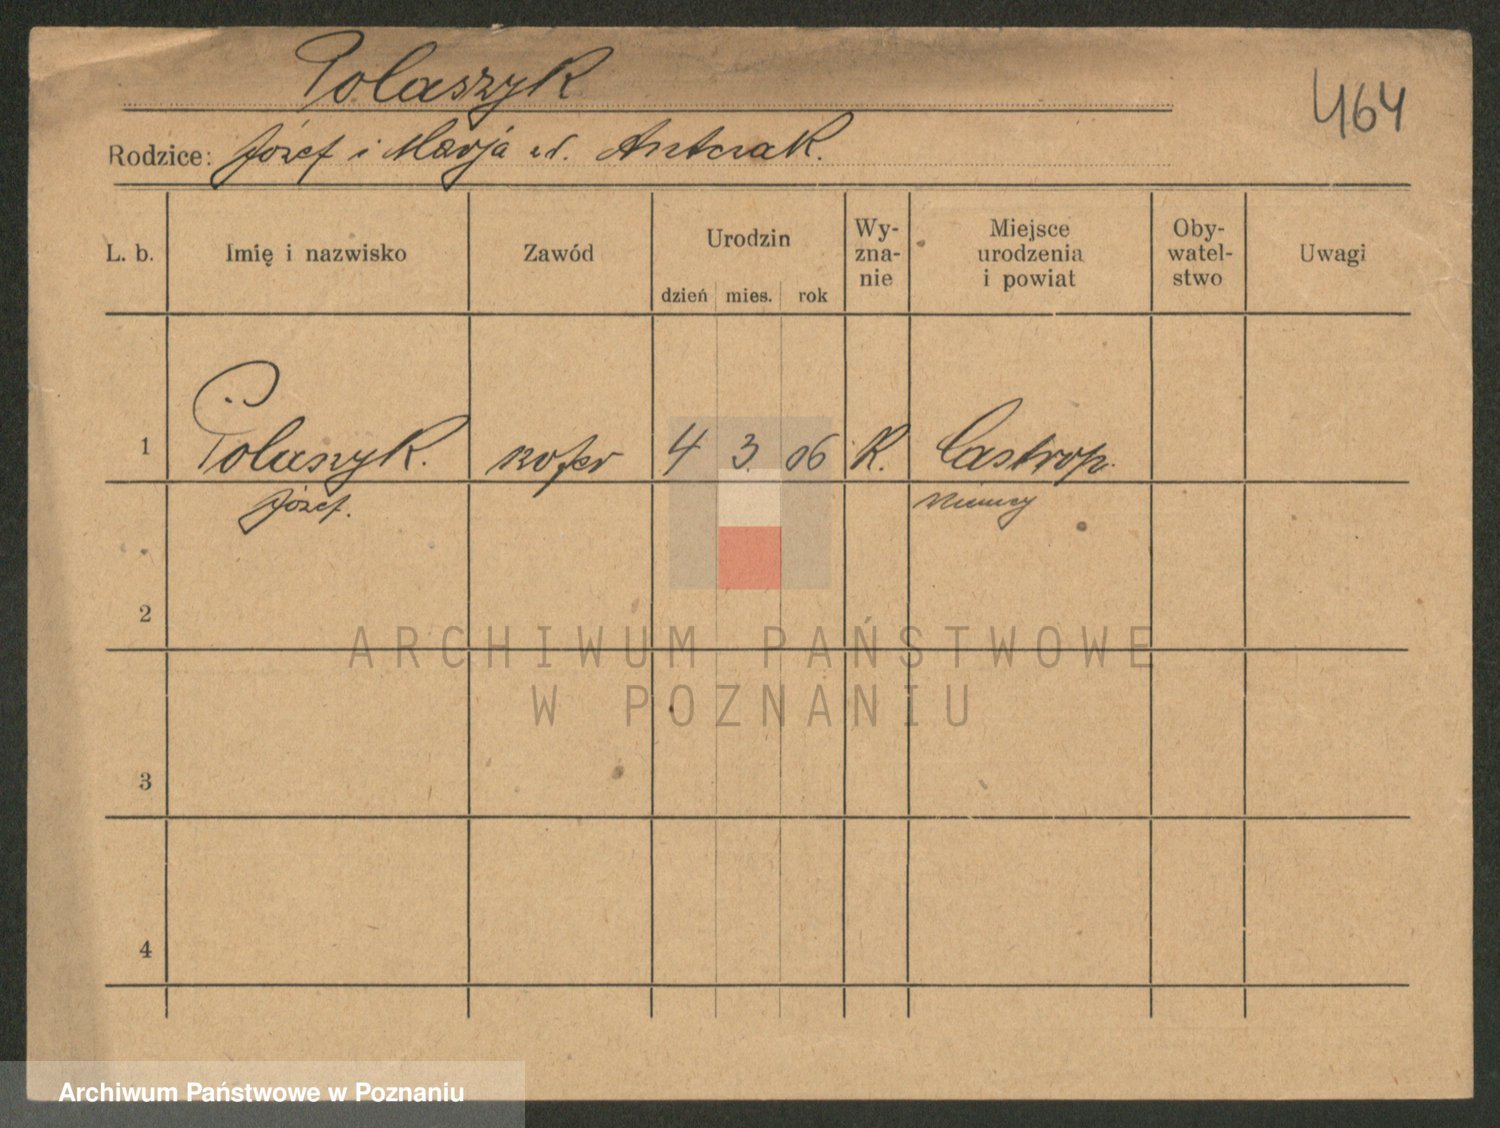 Polaszyk
464
Rodzice: Józef i Marja ur. Antczak.
L. b. Imię i nazwisko Zawód Urodzin dzień mies. rok Wy-zna-nie Miejsce urodzenia i powiat Oby-watel-stwo Uwagi
1 Polaszyk. szofer 4 3. 06 K. Castrop.
Józef. Niemcy
2
3
4
ARCHIWUM PAŃSTWOWE
W POZNANIU
Archiwum Państwowe w Poznaniu